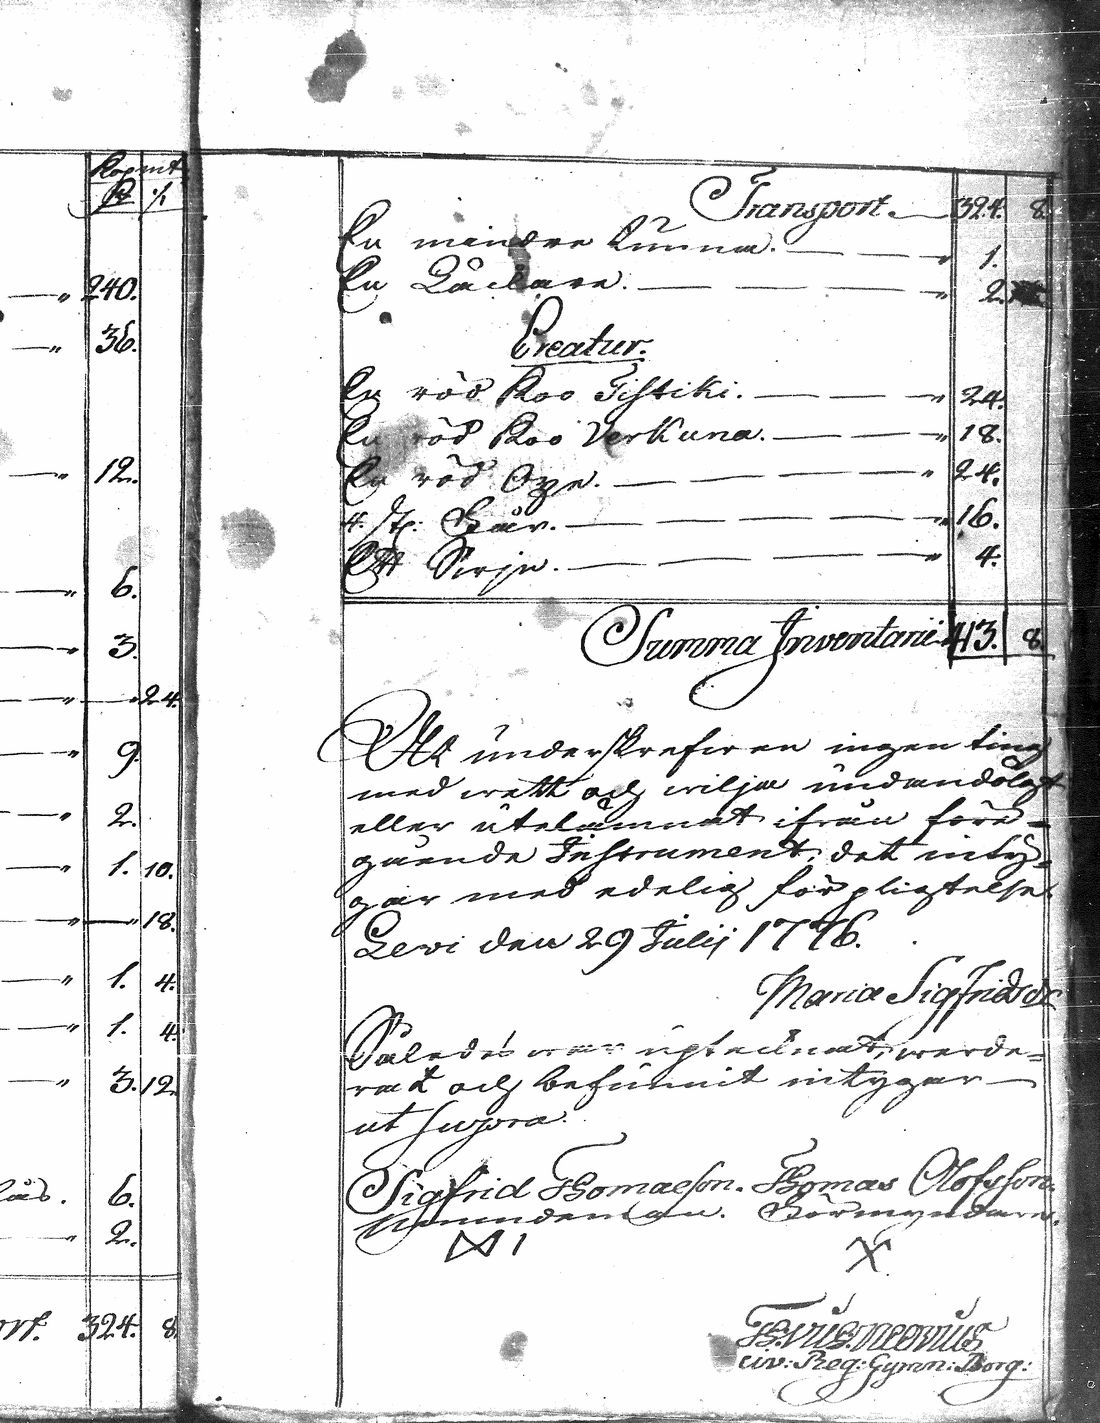 Kopmt
240.
36.
12.
6.
3.
24.
9.
2.
1. 10.
18.
1. 4.
1. 4.
3. 12.
6.
2.
324. 8.
Transport. 324. 8.
En mindre tunna. 1.
En 2.
Creatur.
En röd Koo Tistiki. 24.
En röd Koo Verkuna. 18.
En röd Oxe. 24.
4. st: Fåår. 16.
Ett 4.
Summa Inventarii 413. 8.
Att underskrefwen ingen ting
med wett och wilja undandölgt
eller utelämnat ifrån före-
gående Instrument, det inty-
gar med edelig förpligtelse.
Levi den 29 Julij 1776.
Maria Sigfridsdr
Således wara uptecknat, werde-
rat och befunnit intygar
ut supra.
Sigfrid Thomasson. Thomas Olofsson.
Nämndeman. Förmyndare.
X
civ: Reg: Gymn: Borg: